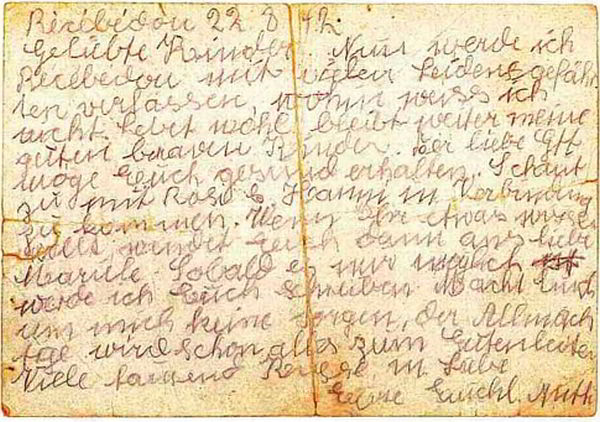 Récébédou 22 8 42.
Geliebte Kinder. Nun werde ich
Récébédou mit vielen Leidensgefähr
ten verlassen, wohin weiss ich
nicht. Lebt wohl bleibt weiter meine
guten braven Kinder. Der liebe Gtt
möge Euch gesund erhalten. Schaut
zu mit Rosa & Hanni in Verbindung
zu kommen. Wenn Ihr etwas wissen
wollt, wendet Euch dann ans liebe
Mariele. Sobald es mir möglich
werde ich Euch schreiben. Macht Euch
um mich keine Sorgen, der Allmäch
tige wird schon alles zum Guten leiten
Viele tausend Küsse in Liebe
Eure Mutter